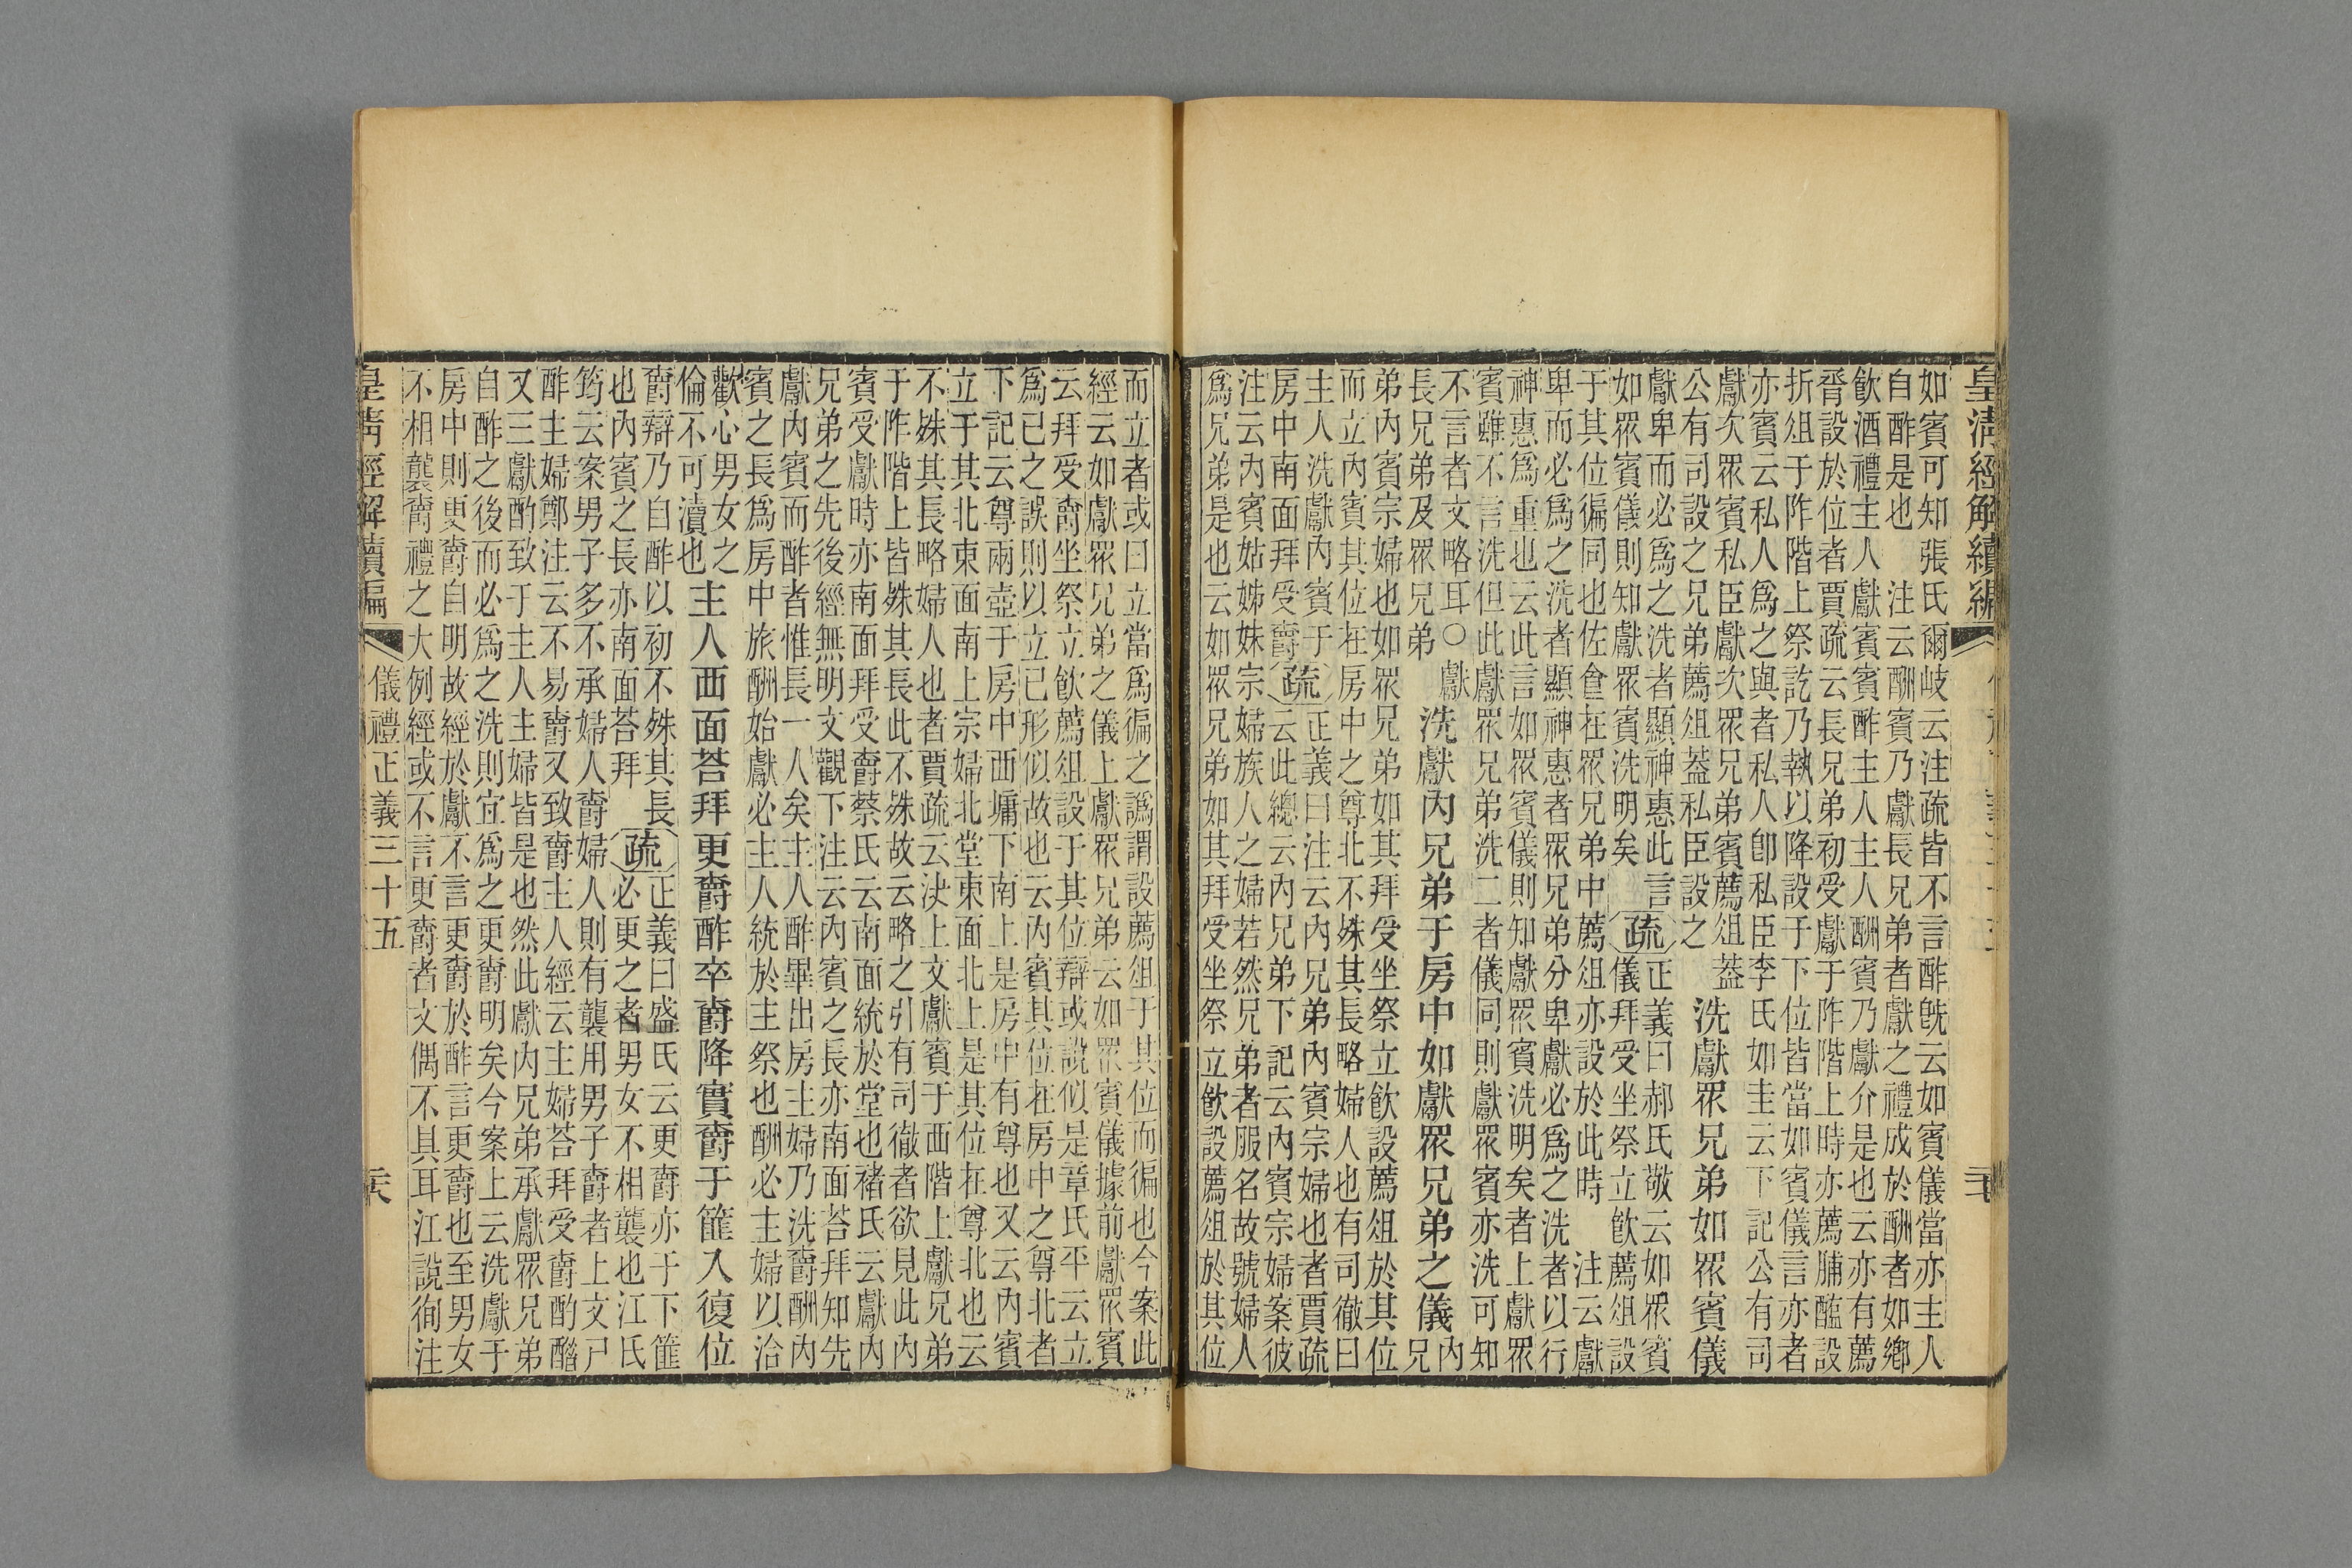 皇淸經解續編
如賓可知張氏爾岐云注疏皆不言酢旣云如賓儀當亦主人
自酢是也　注云酬賓乃獻長兄弟者獻之禮成於酬者如鄉
飮酒禮主人獻賓賓酢主人主人酬賓乃獻介是也云亦有薦
脀設於位者賈疏云長兄弟初受獻于阼階上時亦薦脯醢設
折俎于阼階上祭訖乃執以降設于下位皆當如賓儀言亦者
亦賓云私人爲之與者私人卽私臣李氏如圭云下記公有司
獻次眾賓私臣獻次眾兄弟賓薦俎葢
公有司設之兄弟薦俎葢私臣設之
洗獻眾兄弟如眾賓儀
獻卑而必爲之洗者顯神惠此言
如眾賓儀則知獻眾賓洗明矣
疏
正義曰郝氏敬云如眾賓
儀拜受坐祭立飮薦俎設
于其位徧同也佐食在眾兄弟中薦俎亦設於此時　注云獻
卑而必爲之洗者顯神惠者眾兄弟分卑獻必爲之洗者以行
神惠爲重也云此言如眾賓儀則知獻眾賓洗明矣者上獻眾
賓雖不言洗但此獻眾兄弟洗二者儀同則獻眾賓亦洗可知
不言者文略耳○獻
長兄弟及眾兄弟
洗獻內兄弟于房中如獻眾兄弟之儀
內
兄
弟內賓宗婦也如眾兄弟如其拜受坐祭立飮設薦俎於其位
而立內賓其位在房中之尊北不殊其長略婦人也有司徹曰
主人洗獻內賓于
房中南面拜受爵
疏
正義曰注云內兄弟內賓宗婦也者賈疏
云此總云內兄弟下記云內賓宗婦案彼
注云內賓姑姊妹宗婦族人之婦若然兄弟者服名故號婦人
爲兄弟是也云如眾兄弟如其拜受坐祭立飮設薦俎於其位
而立者或曰立當爲徧之譌謂設薦俎于其位而徧也今案此
經云如獻眾兄弟之儀上獻眾兄弟云如眾賓儀據前獻眾賓
云拜受爵坐祭立飮薦俎設于其位辯或說似是章氏平云立
爲已之誤則以立已形似故也云內賓其位在房中之尊北者
下記云尊兩壺于房中西墉下南上是房中有尊也又云內賓
立于其北東面南上宗婦北堂東面北上是其位在尊北也云
不殊其長略婦人也者賈疏云決上文獻賓于西階上獻兄弟
于阼階上皆殊其長此不殊故云略之引有司徹者欲見此內
賓受獻時亦南面拜受爵蔡氏云南面統於堂也褚氏云獻內
兄弟之先後經無明文觀下注云內賓之長亦南面荅拜知先
獻內賓而酢者惟長一人矣主人酢畢出房主婦乃洗爵酬內
賓之長爲房中旅酬始獻必主人統於主祭也酬必主婦以洽
歡心男女之
倫不可瀆也
主人西面荅拜更爵酢卒爵降實爵于篚入復位
爵辯乃自酢以初不殊其長
也內賓之長亦南面荅拜
疏
正義曰盛氏云更爵亦于下篚
必更之者男女不相襲也江氏
筠云案男子多不承婦人爵婦人則有襲用男子爵者上文尸
酢主婦鄭注云不易爵又致爵主人經云主婦荅拜受爵酌醋
又三獻酌致于主人主婦皆是也然此獻內兄弟承獻眾兄弟
自酢之後而必爲之洗則宜爲之更爵明矣今案上云洗獻于
房中則更爵自明故經於獻不言更爵於酢言更爵也至男女
不相襲爵禮之大例經或不言更爵者文偶不具耳江說徇注
皇清經解續編
儀禮正義三十五